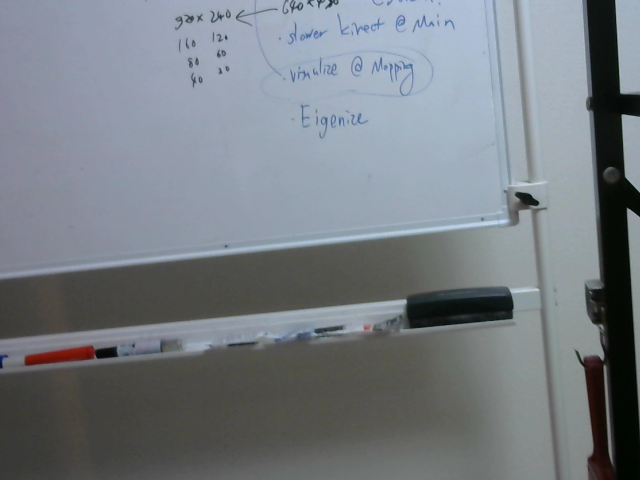 320 × 240 ← 640 × 480
160 120
80 60
40 30
· slower kinect @ Main
· visualize @ Mapping
· Eigenize